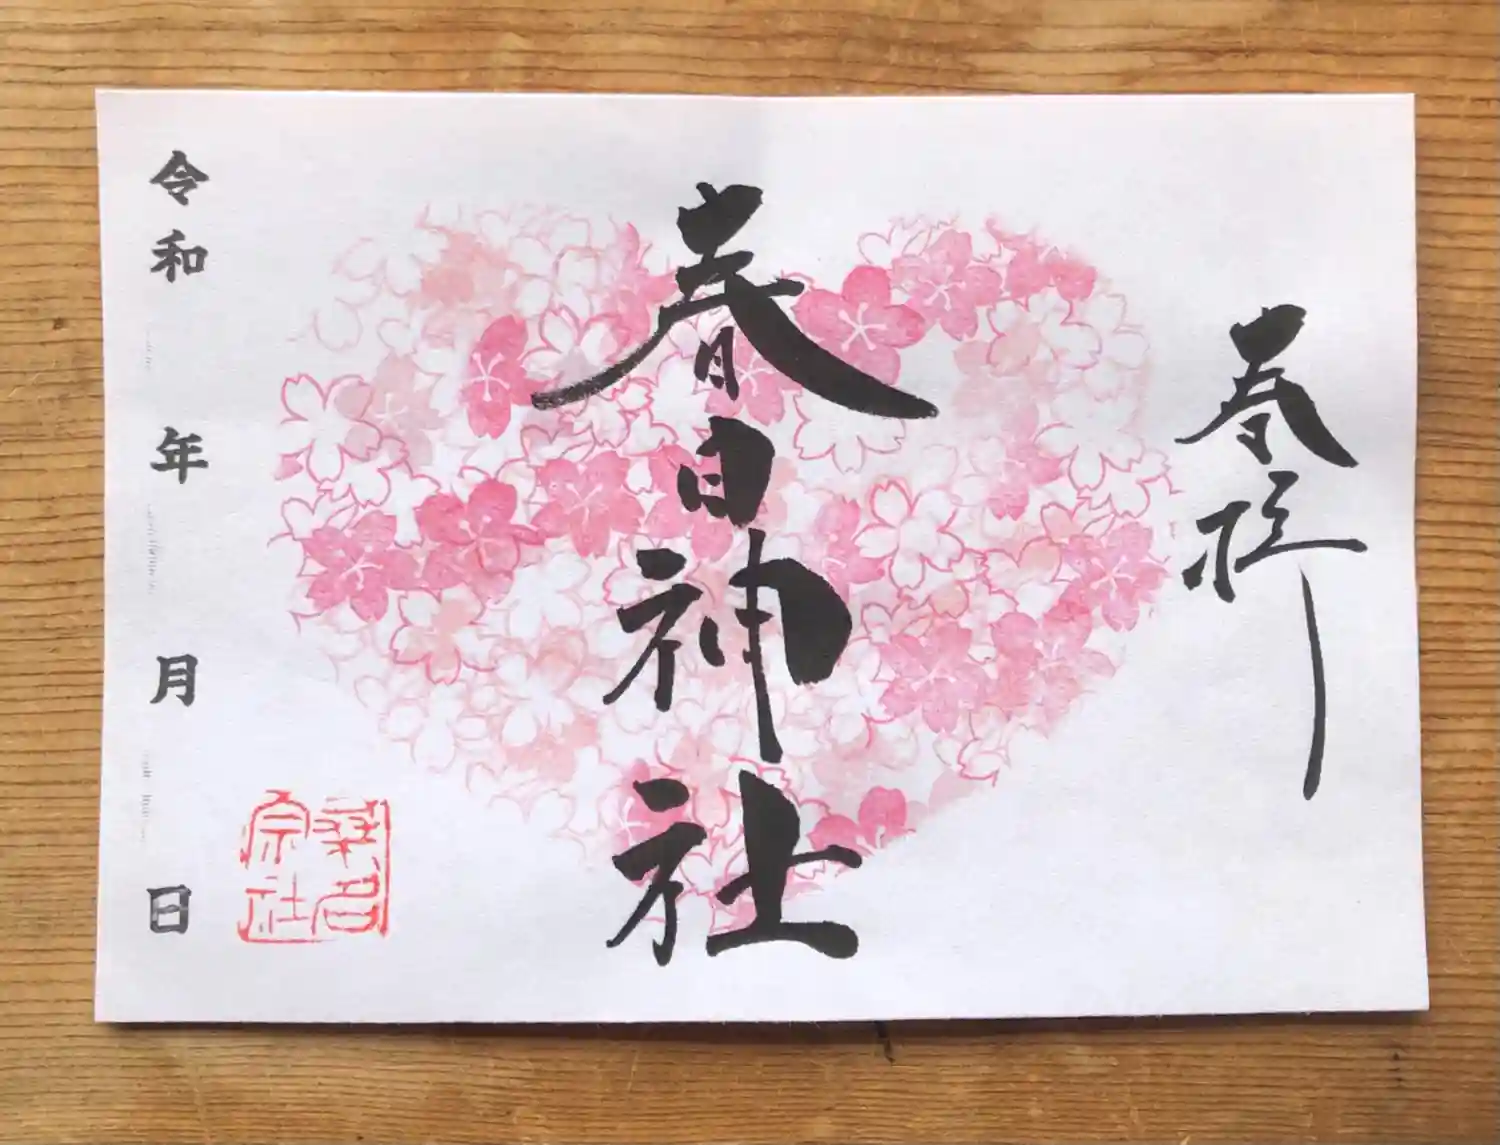 春拝
春日神社
令和 年 月 日
桑名
宗社